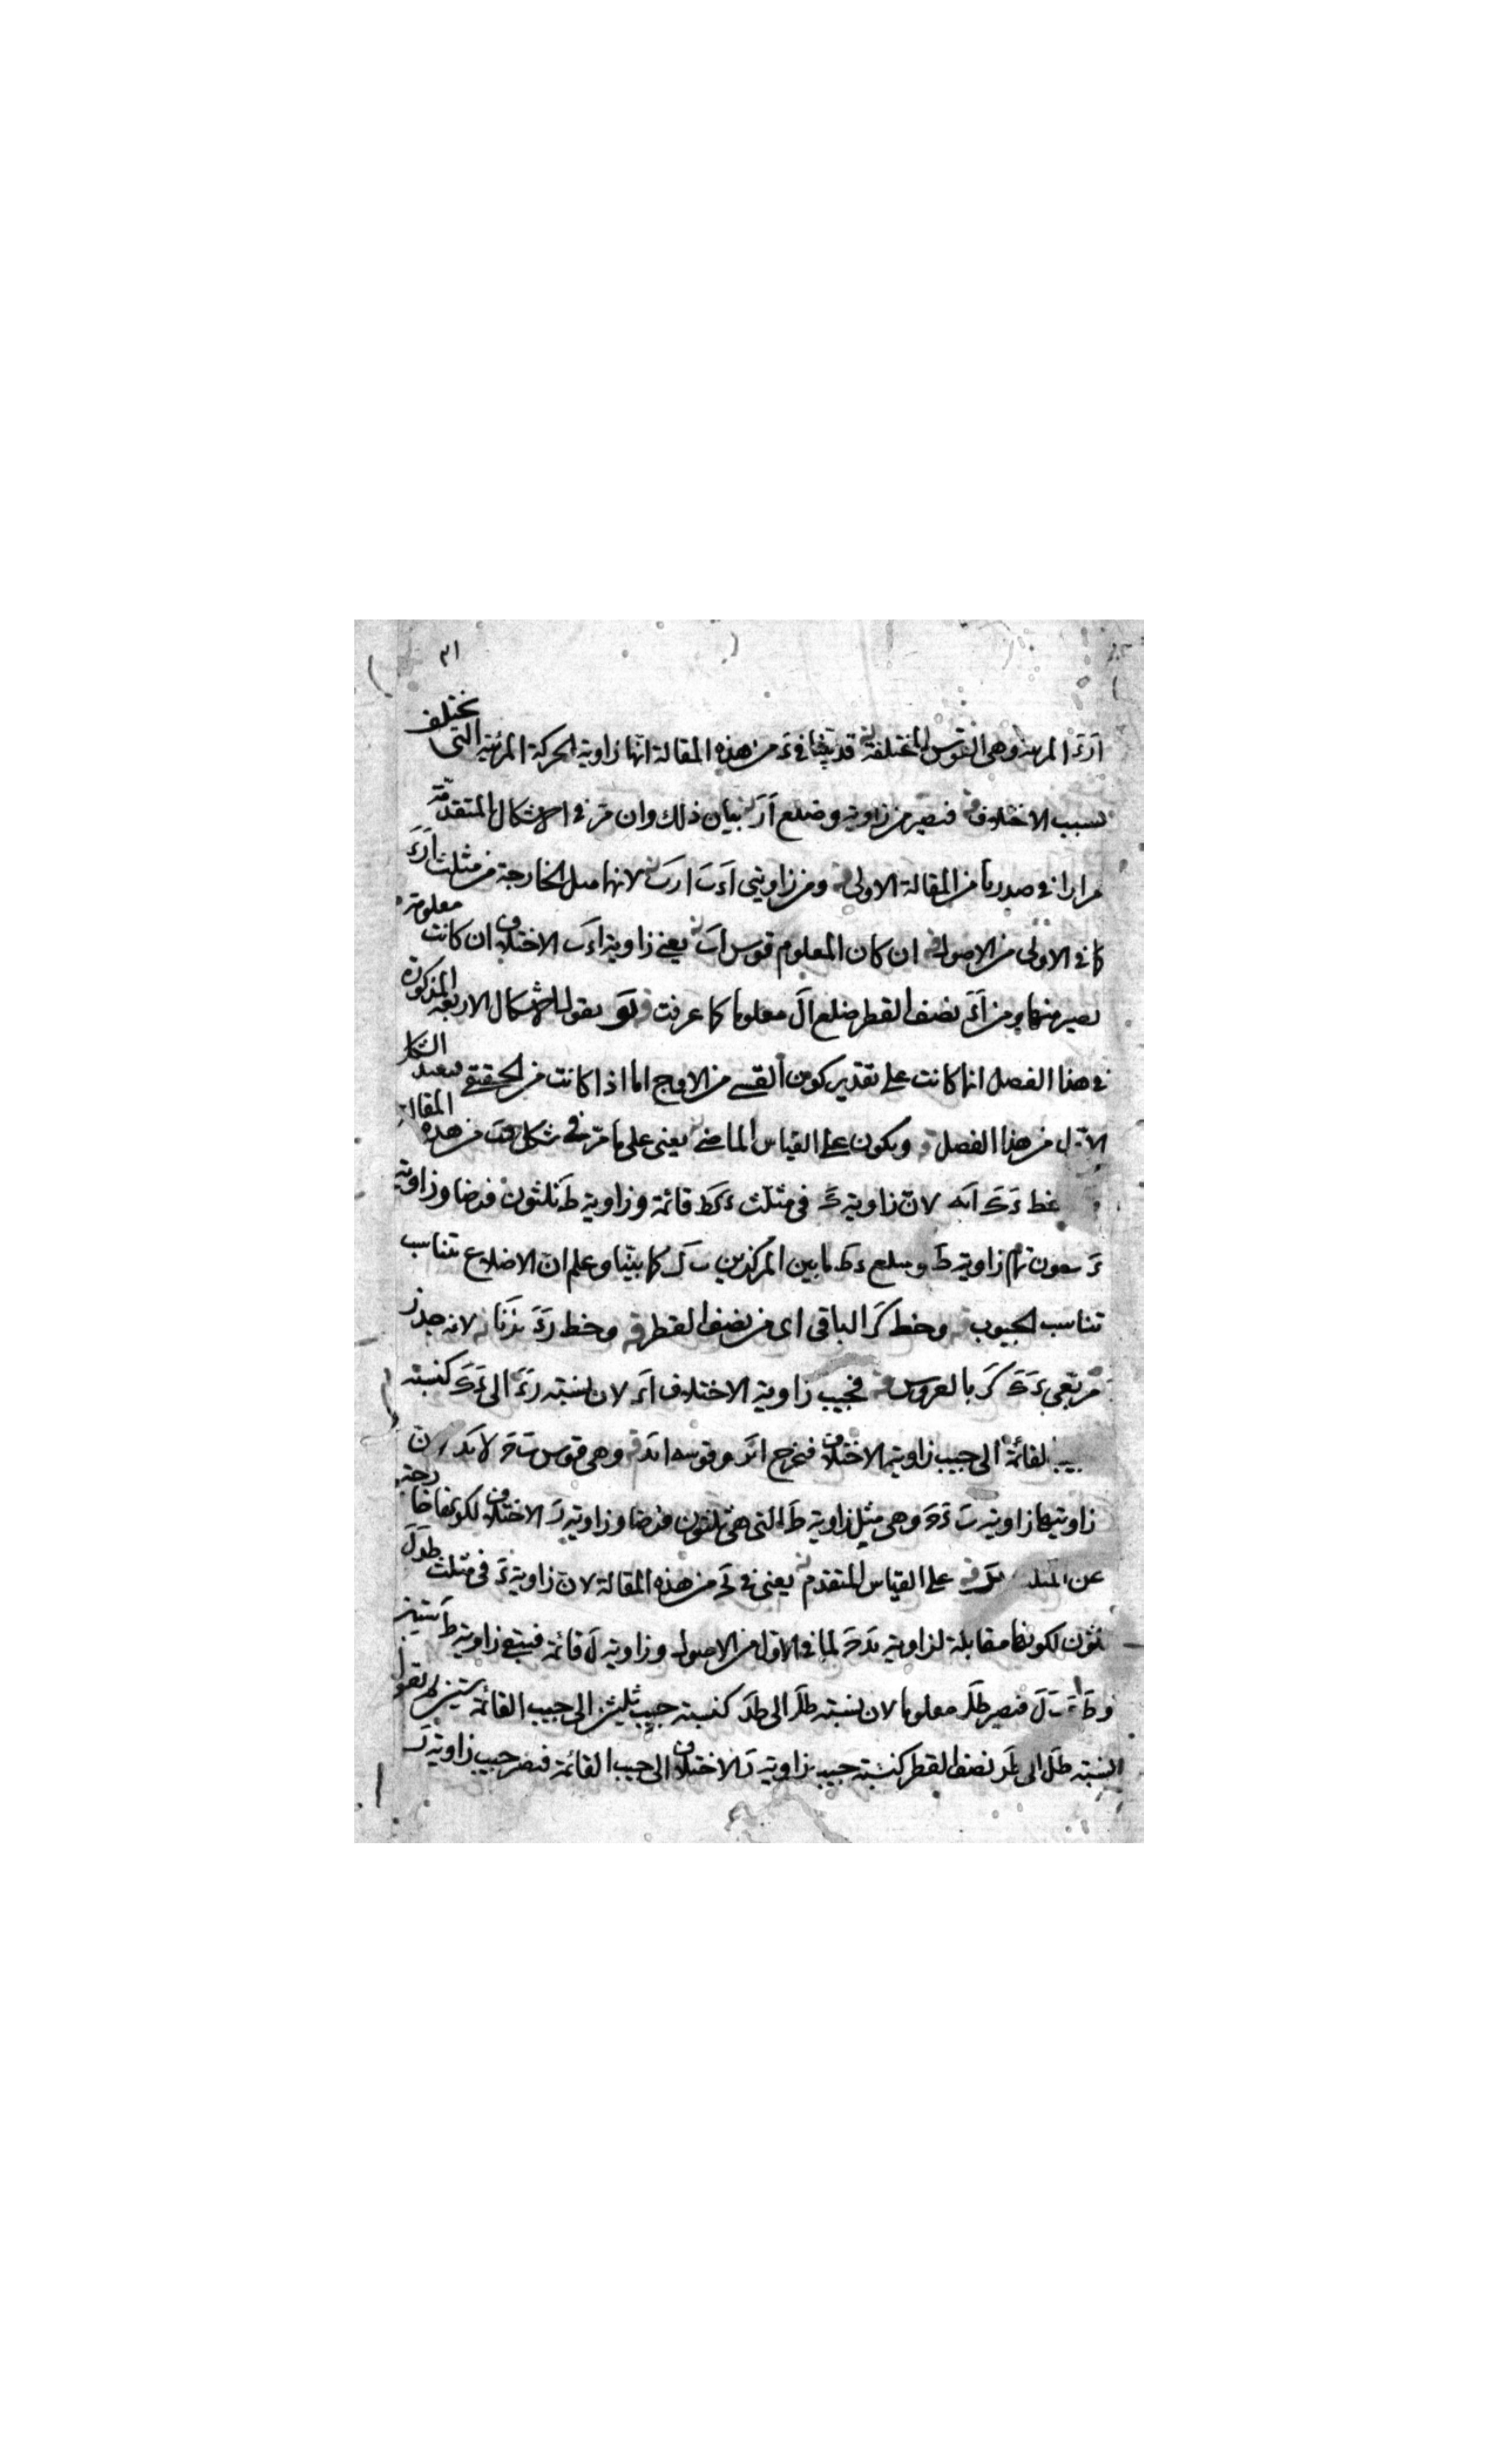 ٣١
اَرَءَ المرئية وهى القوس المختلفة قد بينا فى ءَ من هذه المقالة انها زاوية الحركة المرئية التى تختلف
بسبب الاختلاف فنصير من زاوية وضلع اَرَ بيان ذلك وان مر فى الاشكال المتقدمة
مرارا فى صدرنا من المقالة الاولى ومن زاويتى اَءَبَ اَرَبَ لانها مثل الخارجة من مثلث اَرَءَ
كما فى الاولى من الاصول ان كان المعلوم قوس اَبَ يعنى زاوية اءَبَ الاختلاف ان كانت معلومة
نصير منها ومن اَءَ نصف القطر ضلع اَلَ معلوما كما عرفت نقول الاشكال الاربعة المذكورة
فى هذا الفصل انما كانت على تقدير كون القسى من الاوج اما اذا كانت من الحقيقى فنعيد الشكل
الاول من هذا الفصل ويكون على القياس الماضى يعنى على ما مر فى شكل من هذه المقالة
خط ءَكَ لان زاوية كَ فى مثلث ءَكَطَ قائمة وزاوية طَ ثلثون فرضا وزاوية
ءَ ستون تمام زاوية طَ وضلع ءَطَ ما بين المركزين كما بينا وعلم ان الاضلاع تناسب
تناسب الجيوب وخط كَرَ الباقى اى من نصف القطر وخط رَءَ لانه جذر
مربعى ءَكَ كَرَ بالعروس فجيب زاوية الاختلاف لان نسبة رَءَ الى ءَكَ كنسبة
جيب القائمة الى جيب زاوية الاختلاف فخرج وقوسه وهى قوس بَحَ لان
زاويتها زاوية بَ ءَحَ وهى مثل زاوية طَ التى هى ثلثون فرضا وزاوية رَ الاختلاف لكونها خارجة
عن المثلث على القياس المتقدم يعنى فى من هذه المقالة لان زاوية ءَ فى مثلث طءَلَ
ثلثون لكونها مقابلة لزاوية بَءَحَ لما فى الاول من الاصول وزاوية لَ قائمة فيبقى زاوية طَ ستين
وطَءَ فنصير طَلَ معلوما لان نسبة طَلَ الى طَءَ كنسبة جيب ثلثين الى جيب القائمة ستين ثم نقول
نسبة طَلَ الى طَرَ نصف القطر كنسبة جيب زاوية رَ الاختلاف الى جيب القائمة فنصير جيب زاوية رَ